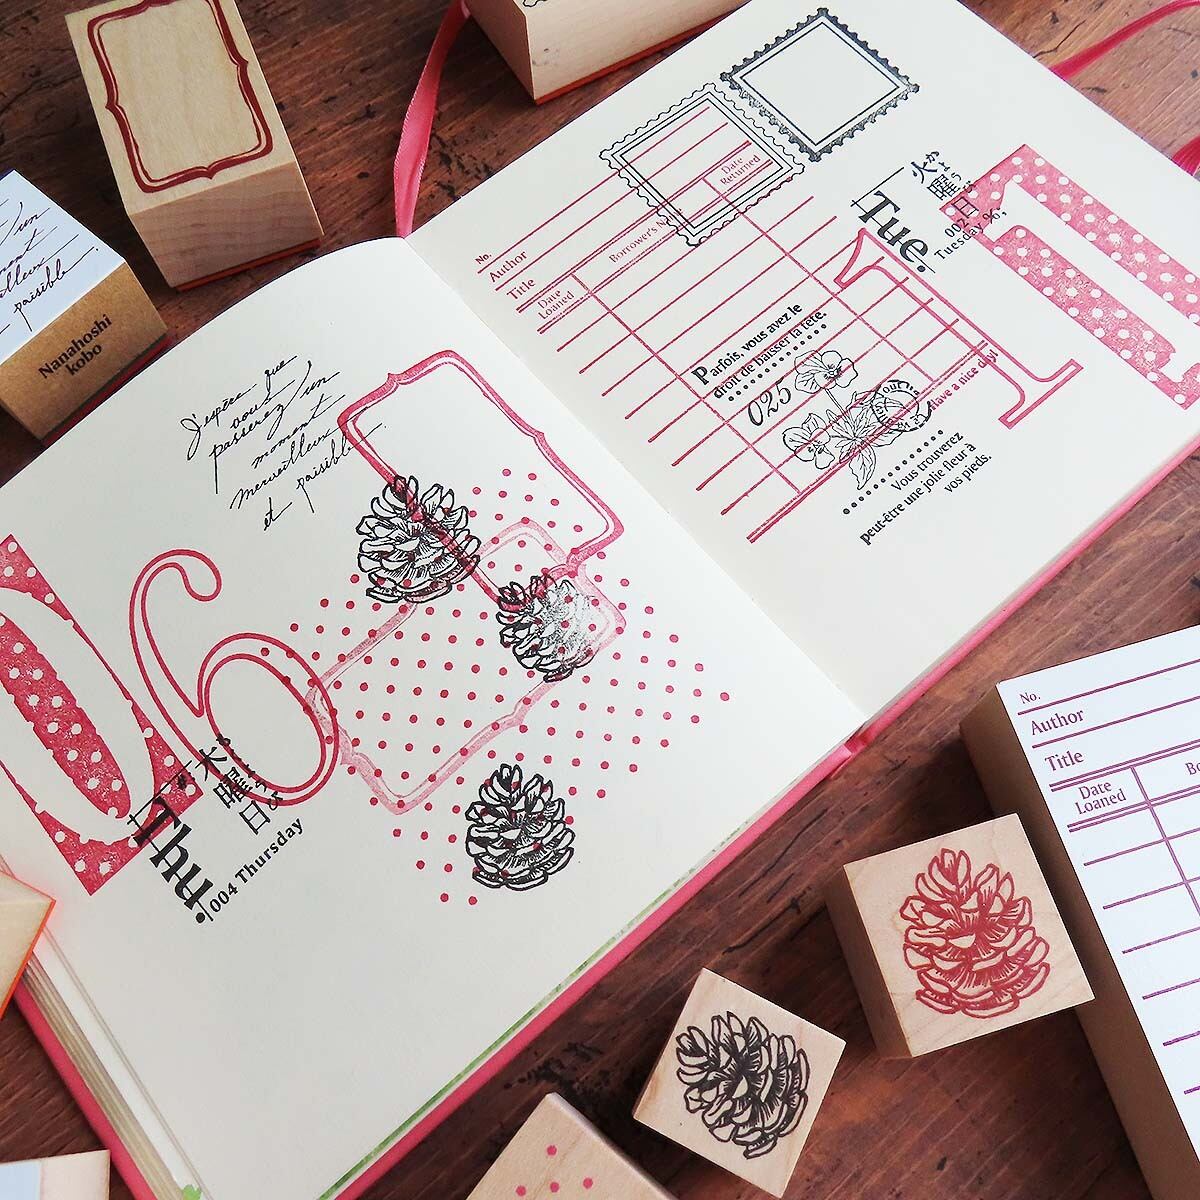 Nanahoshi
kobo
J'espère que
vous
passerez un
moment
merveilleux
et paisible
06
木曜日
Thu.
004 Thursday
No.
Author
Title
Date
Loaned
Borrower's N
Date
Returned
火曜日
かようび
Tue.
002
Tuesday
11
Parfois, vous avez le
droit de baisser la tête.
025
Have a nice day!
Vous trouverez
peut-être une jolie fleur à
vos pieds.
un
moment
merveilleux
paisible
No.
Author
Title
Date
Loaned
Bo